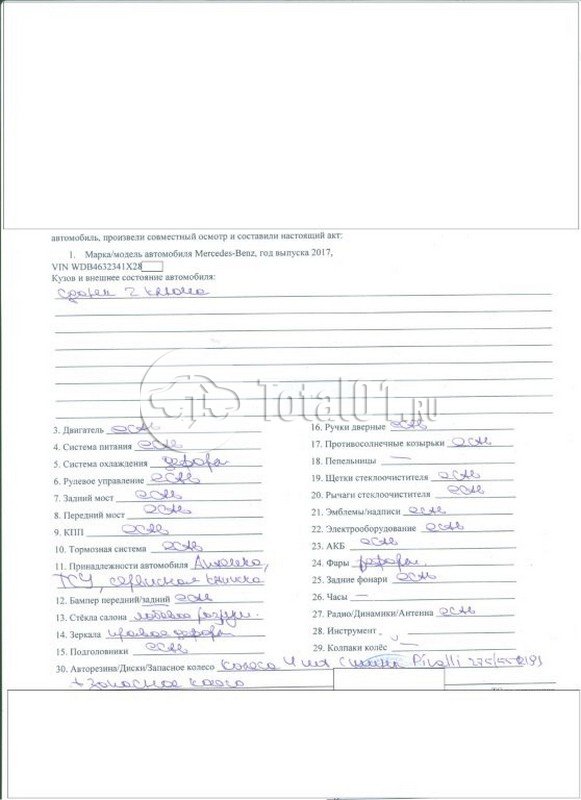 автомобиль, произвели совместный осмотр и составили настоящий акт:
1. Марка/модель автомобиля Mercedes-Benz, год выпуска 2017,
VIN WDB4632341X28
Кузов и внешнее состояние автомобиля:
2 ключа
Total01.ru
3. Двигатель есть
4. Система питания есть
5. Система охлаждения деформ
6. Рулевое управление есть
7. Задний мост есть
8. Передний мост есть
9. КПП есть
10. Тормозная система есть
11. Принадлежности автомобиля
ТСУ, сервисная книжка
12. Бампер передний/задний есть
13. Стёкла салона лобовое
14. Зеркала правое деформ
15. Подголовники есть
16. Ручки дверные есть
17. Противосолнечные козырьки есть
18. Пепельницы —
19. Щетки стеклоочистителя есть
20. Рычаги стеклоочистителя есть
21. Эмблемы/надписи есть
22. Электрооборудование есть
23. АКБ есть
24. Фары
25. Задние фонари есть
26. Часы —
27. Радио/Динамики/Антенна есть
28. Инструмент
29. Колпаки колёс —
30. Авторезина/Диски/Запасное колесо колесо 4 шт шина Pirelli
+ запасное колесо